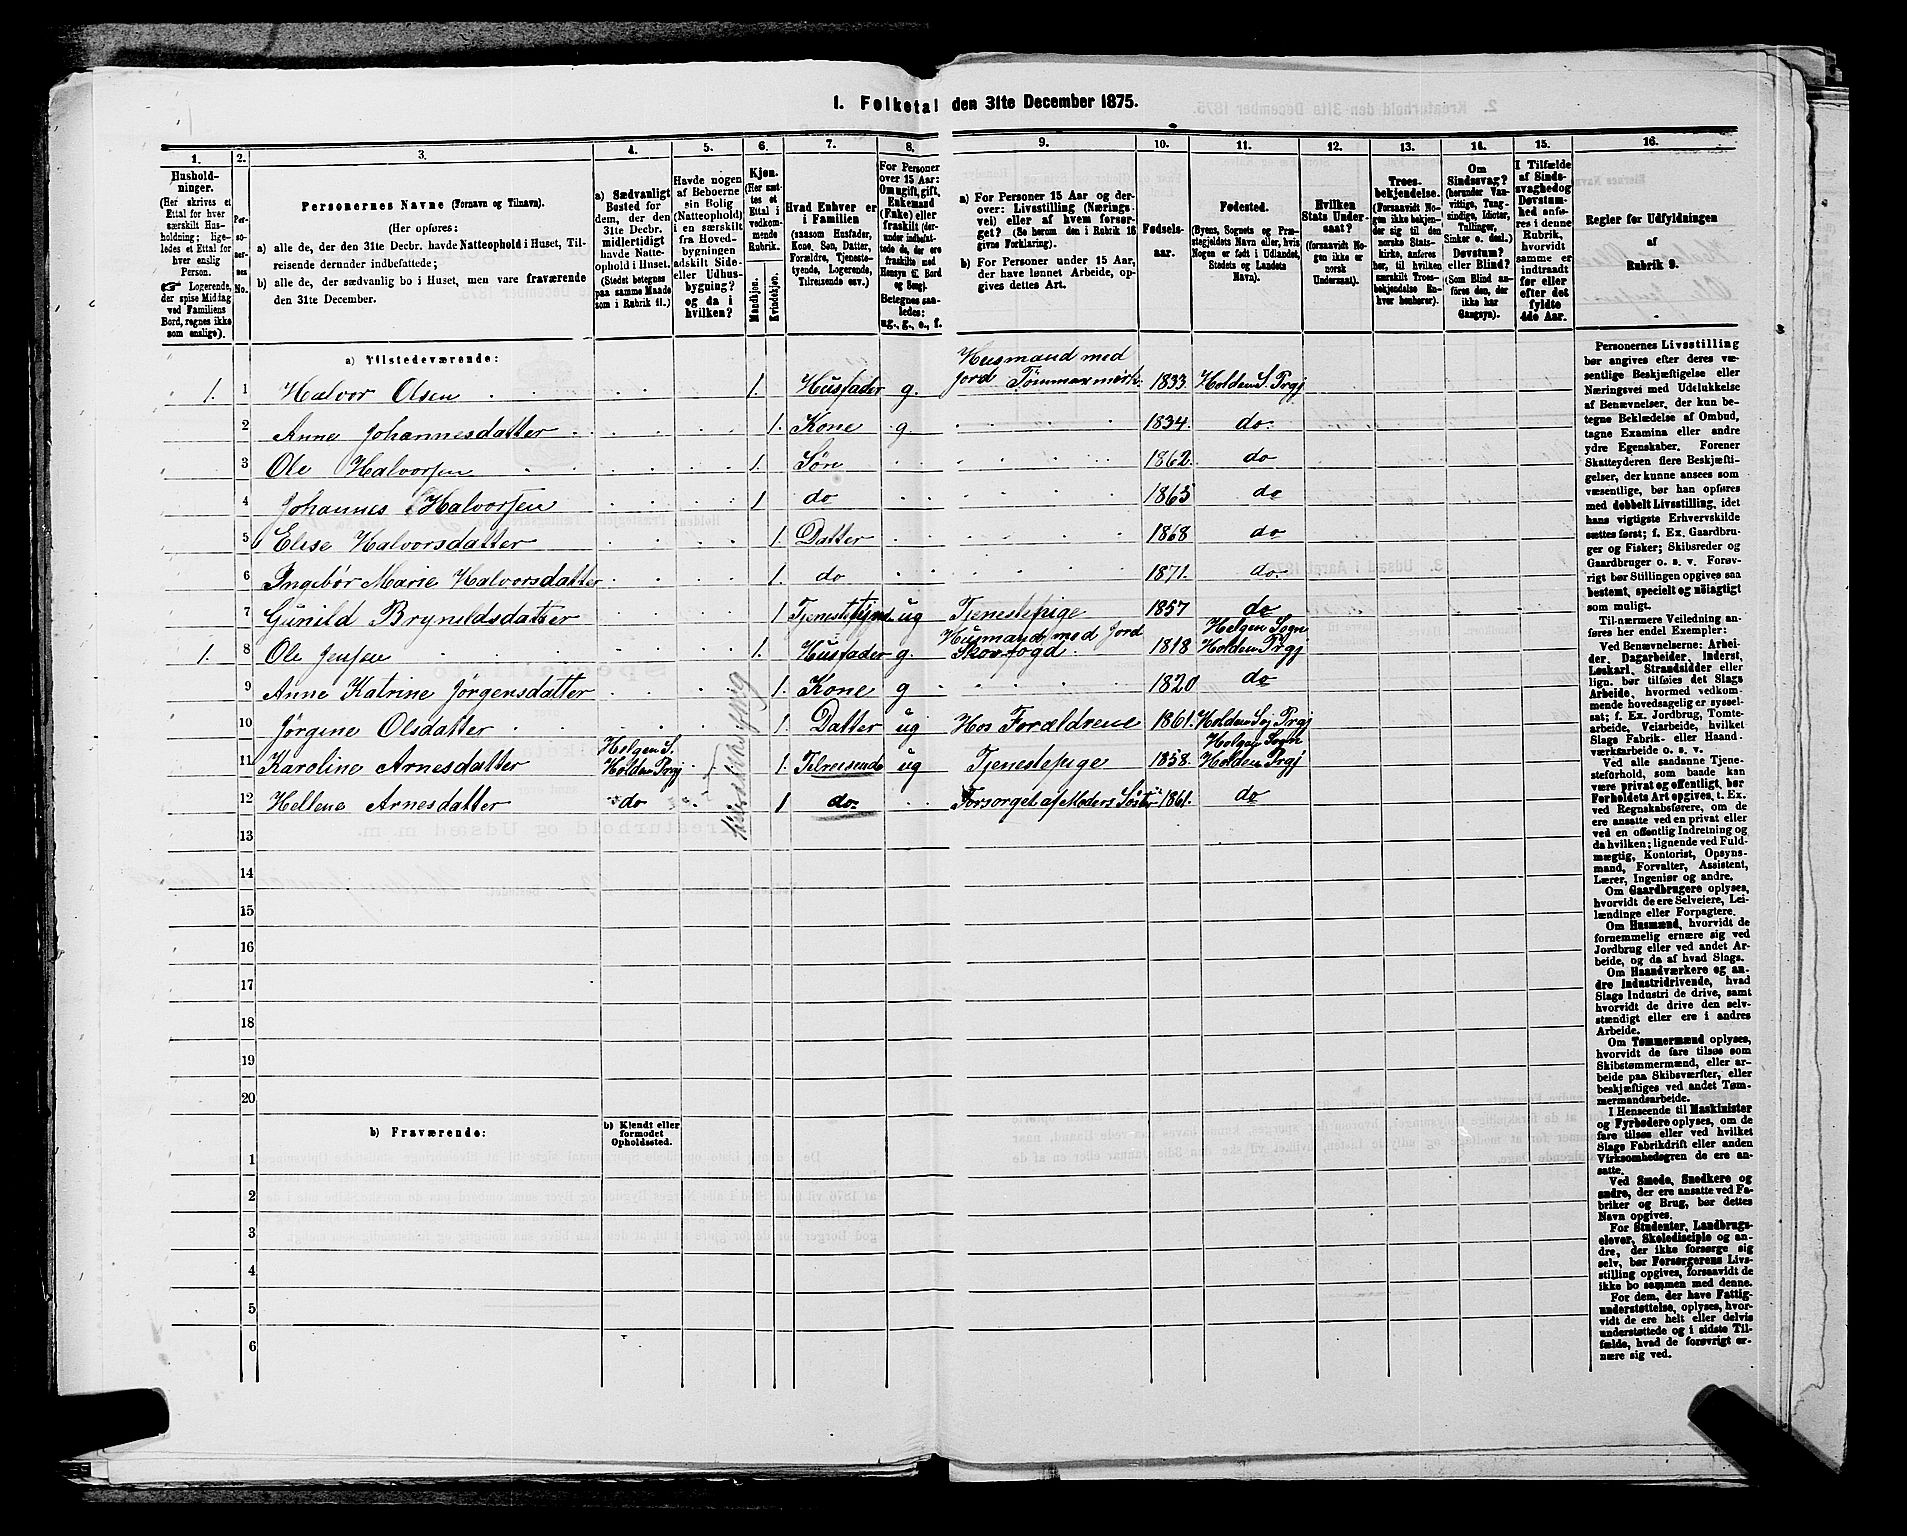 1. Folketal den 31te December 1875.
1. 2. 3. 4. 5. 6. 7. 8. 9. 10. 11. 12. 13. 14. 15. 16.
Hushold-
ninger.
(Her skrives et
Ettal for hver
særskilt Hus-
holdning; lige-
ledes et Ettal for
hver enslig
Person.
☞ Logerende,
der spise Middag
ved Familiens
Bord, regnes ikke
som enslige).
Per-
so-
ner-
nes
No.
Personernes Navne (Fornavn og Tilnavn).
(Her opføres:
a) alle de, der den 31te Decbr. havde Natteophold i Huset, Til-
reisende derunder indbefattede;
b) alle de, der sædvanlig bo i Huset, men vare fraværende
den 31te December.
a) Sædvanligt
Bosted for
dem, der den
31te Decbr.
midlertidigt
havde Natte-
ophold i Huset.
(Stedet betegnes
paa samme Maade
som i Rubrik 11.)
Havde nogen
af Beboerne
sin Bolig
(Natteophold)
i en særskilt
fra Hoved-
bygningen
adskilt Side-
eller Udhus-
bygning?
og da i
hvilken?
Kjøn.
(Her sæt-
tes et
Ettal i
vedkom-
mende
Rubrik.
Mandkjøn.
Kvindekjøn.
Hvad Enhver er
i Familien
(saasom Husfader,
Kone, Søn, Datter,
Forældre, Tjeneste-
tyende, Logerende,
Tilreisende osv.)
For Personer
over 15 Aar:
Om ugift, gift,
Enkemand
(Enke) eller
fraskilt (der-
under indbefat-
tede de, der ere
fraskilte med
Hensyn til Bord
og Seng).
Betegnes saa-
ledes:
ug., g., e., f.
a) For Personer 15 Aar og der-
over: Livsstilling (Nærings-
vei) eller af hvem forsør-
get? (Se herom den i Rubrik 16
givne Forklaring).
b) For Personer under 15 Aar,
der have lønnet Arbeide, op-
gives dettes Art.
Fødsels-
aar.
Fødested.
(Byens, Sognets og Præ-
stegjeldets Navn eller, hvis
Nogen er født i Udlandet,
Stedets og Landets
Navn).
Hvilken
Stats Under-
saat?
(forsaavidt No-
gen ikke er
norsk
Undersaat).
Troes-
bekjendelse.
(Forsaavidt No-
gen ikke bekjen-
der sig til den
norske Stats-
kirke, anføres
her, til hvilken
særskilt Troes-
bekjendelse En-
hver henhører).
Om
Sindssvag?
(herunder Van-
vittige, Tung-
sindige, Idioter,
Tullinger,
Sinker o. desl.)
Døvstum?
eller Blind?
(Som Blind an-
føres den, der
ikke har
Gangsyn).
I Tilfælde
af Sinds-
svaghed og
Døvstum-
hed anfø-
res i denne
Rubrik,
hvorvidt
samme er
indtraadt
før eller
efter det
fyldte
4de Aar.
Regler for Udfyldningen
af
Rubrik 9.
a) Tilstedeværende:
1. 1 Halvor Olsen 1. Husfader g. Husmand med Jord Tømmermærk. 1833. Holden S. Prgj
2 Anne Johannesdatter 1. Kone g. 1834. do.
3 Ole Halvorsen 1. Søn 1862. do
4 Johannes Halvorsen 1 do 1865 do
5 Elise Halvorsdatter 1. Datter 1868 do
6 Ingebør Marie Halvorsdatter 1. do 1871. do.
7 Gunild Brynildsdatter 1 Tjenestetyende ug Tjenestepige 1857 do
1. 8 Ole Jensen 1. Husfader g. Husmand med Jord Skovfogd. 1818 Helgen Sogn Holden Prgj
9 Anne Katrine Jørgensdatter 1. Kone g 1820 do
10 Jørgine Olsdatter 1. Datter ug Hos Forældrene 1861. Holden S. Prgj
11 Karoline Arnesdatter Helgen S. Holden Prgj 1. Tilreisende ug Tjenestepige 1858. Helgen Sogn Holden Prgj
12 Hellene Arnesdatter do 1 do. Forsørget af Moders Søster 1861. do
13
14
15
16
17
18
19
20
b) Fraværende:
b) Kjendt eller
formodet
Opholdssted.
1
2
3
4
5
6
Personernes Livsstilling
bør angives efter deres væ-
sentlige Beskjæftigelse eller
Næringsvei med Udelukkelse
af Benævnelser, der kun be-
tegne Beklædelse af Ombud,
tagne Examina eller andre
ydre Egenskaber. Forener
Skatteyderen flere Beskjæfti-
gelser, der kunne ansees som
væsentlige, bør han opføres
med dobbelt Livsstilling, idet
hans vigtigste Erhvervskilde
sættes først; f. Ex. Gaardbru-
ger og Fisker; Skibsreder og
Gaardbruger o. s. v. Forøv-
rigt bør Stillingen opgives saa
bestemt, specielt og nøiagtigt
som muligt.
Til nærmere Veiledning an-
føres her endel Exempler:
Ved Benævnelserne: Arbei-
der, Dagarbeider, Inderst,
Løskarl, Strandsidder eller
lign. bør tilføies det Slags
Arbeide, hvormed vedkom-
mende hovedsagelig er syssel-
sat; f. Ex. Jordbrug, Tomte-
arbeide, Veiarbeide, hvilket
Slags Fabrik- eller Haand-
værksarbeide o. s. v.
Ved alle saadanne Tjene-
steforhold, som baade kan
være privat og offentligt, bør
Forholdets Art opgives, t. Ex.
ved Regnskabsførere, om de
ere ansatte ved en privat eller
ved en offentlig Indretning og
da hvilken; lignende ved Fuld-
mægtig, Kontorist, Opsyns-
mand, Forvalter, Assistent,
Lærer, Ingeniør og andre.
Om Gaardbrugere oplyses,
hvorvidt de ere Selveiere, Lei-
lændinge eller Forpagtere.
Om Husmænd, hvorvidt de
fornemmelig ernære sig ved
Jordbrug eller ved andet Ar-
beide, og da af hvad Slags.
Om Haandværkere og an-
dre Industridrivende, hvad
Slags Industri de drive, samt
hvorvidt de drive den selv-
stændigt eller ere i andres
Arbeide.
Om Tømmermænd oplyses,
hvorvidt de fare tilsøs som
Skibstømmermænd, eller ar-
beide paa Skibsværfter, eller
beskjæftiges ved andet Tøm-
mermandsarbeide.
I Henseende til Maskinister
og Fyrbødere oplyses, om de
fare tilsøs eller ved hvilket
Slags Fabrikdrift eller anden
Virksomhedsgren de ere an-
satte.
Ved Smede, Snedkere og
andre, der ere ansatte ved Fa-
briker og Brug, bør dettes
Navn opgives.
For Studenter, Landbrugs-
elever, Skoledisciple og an-
dre, der ikke forsørge sig
selv, bør Forsørgerens Livs-
stilling opgives, forsaavidt de
ikke bo sammen med denne.
For dem, der have Fattig-
understøttelse, oplyses, hvor-
vidt de ere helt eller delvis
understøttede og i sidste Til-
fælde, hvad de forøvrigt er-
nære sig ved.